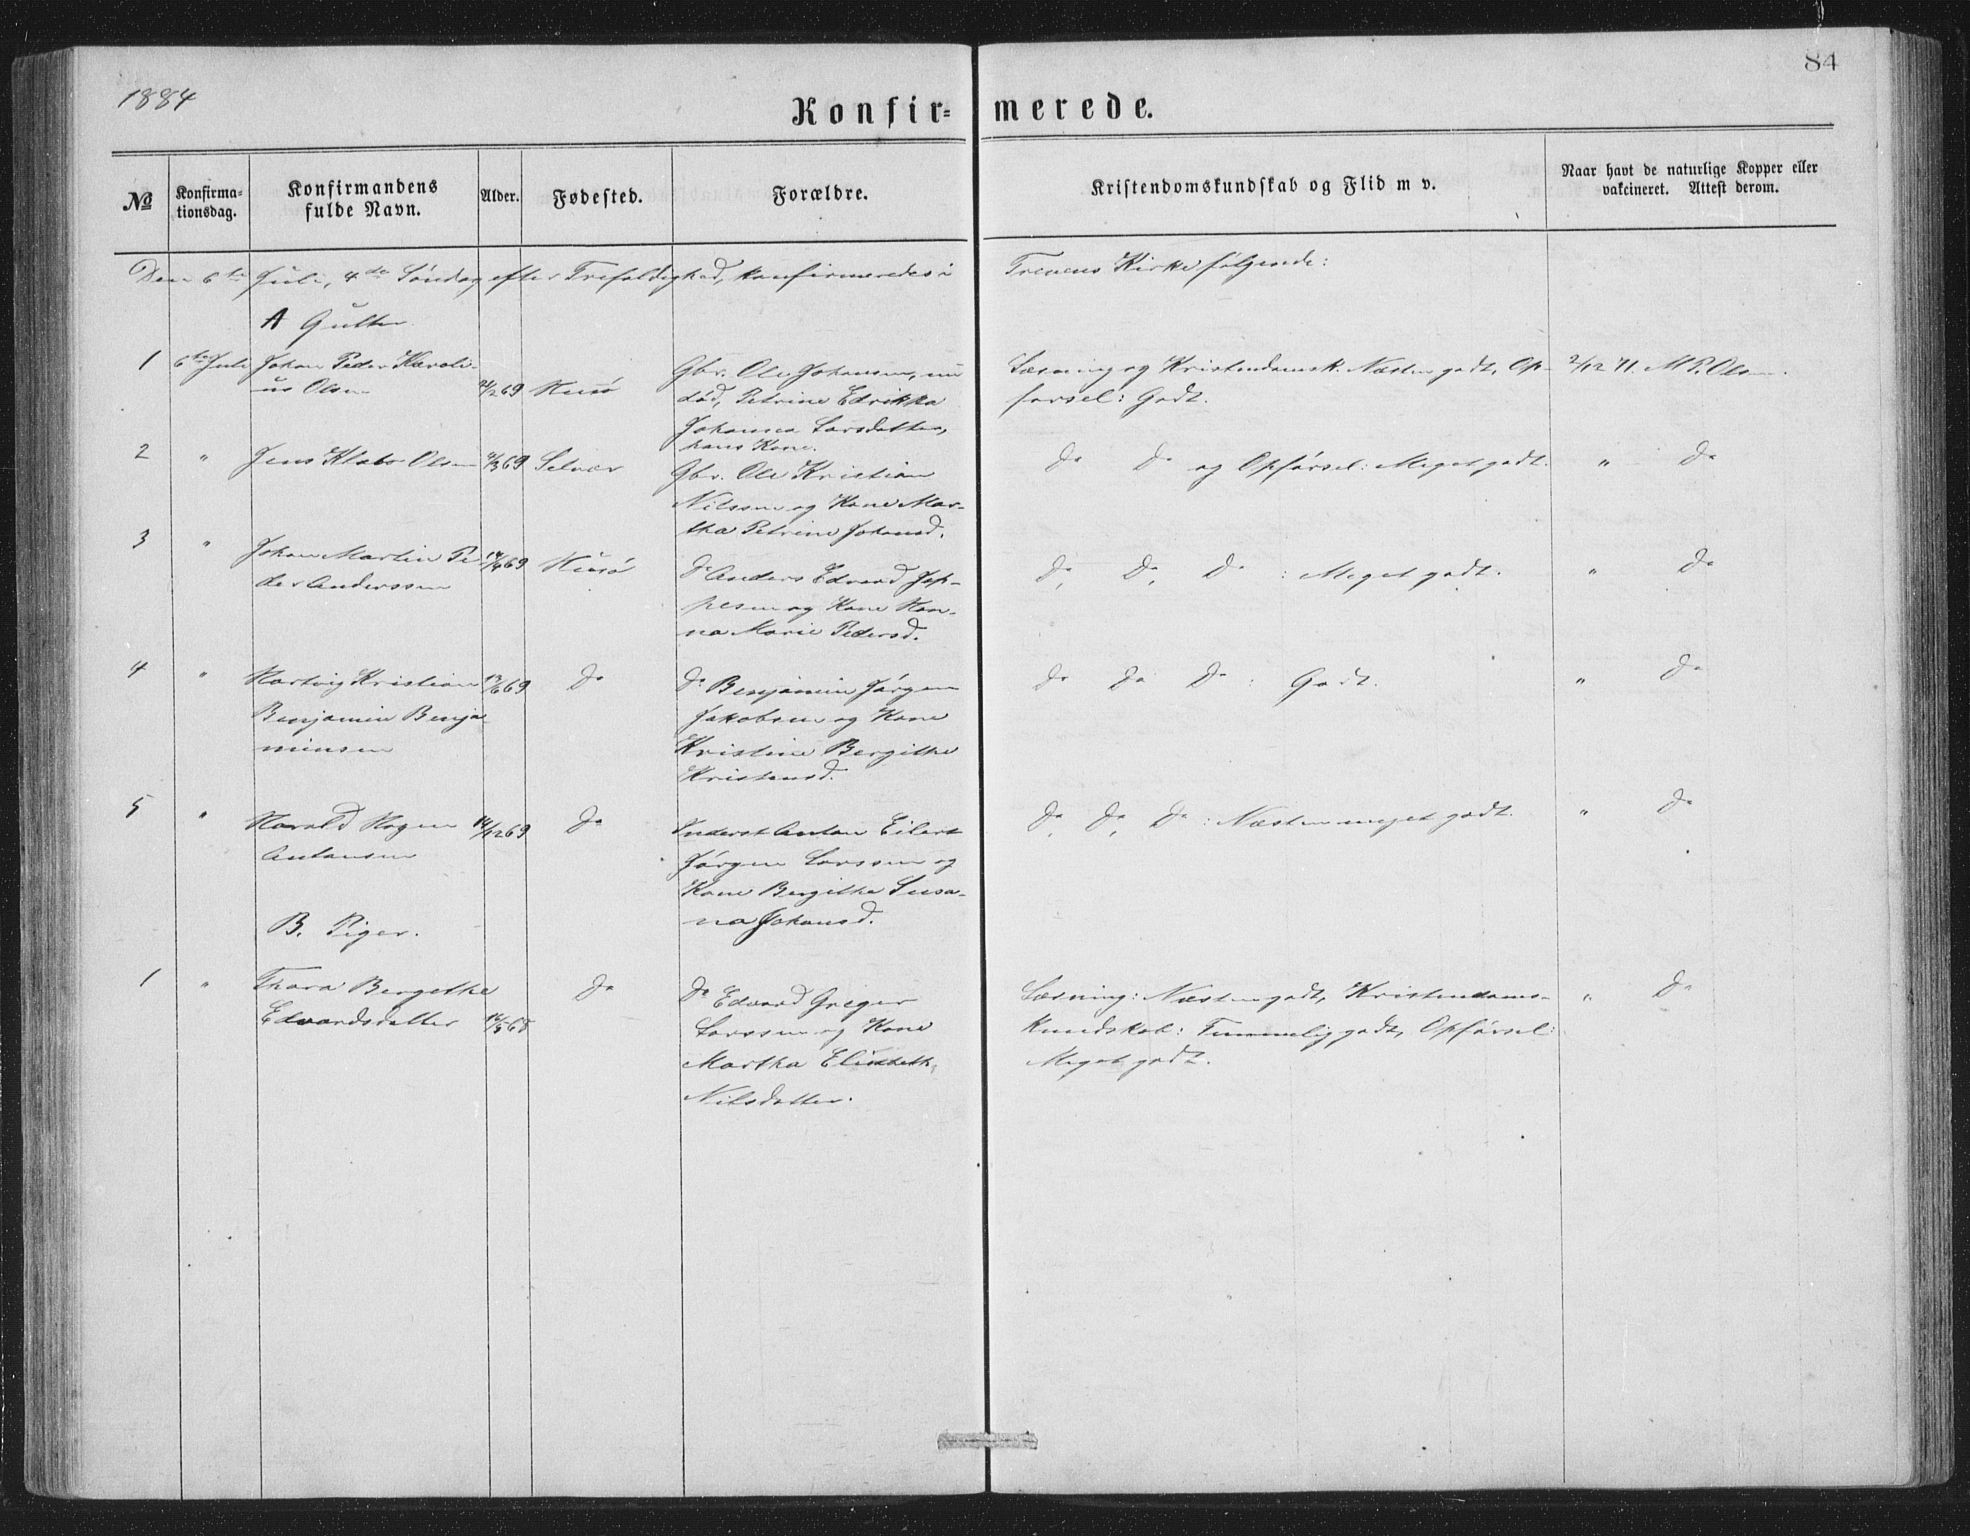 1884
84
Konfir-merede.
№
Konfirma-
tionsdag.
Konfirmandens
fulde Navn.
Alder.
Fødested.
Forældre.
Kristendomskundskab og Flid m v.
Naar havt de naturlige Kopper eller
vakcineret. Attest derom.
Den 6te Juli, 4de Søndag efter Trefoldighed, konfirmeredes i Trenens Kirke følgende:
A Gutter.
1 6te Juli Johan Peder Karoli-
us Olsen 69 Husø
Gbr. Ole Johansen, nu
død, Petrine Edrikka
Johanna Larsdatter,
hans Kone.
Læsning og Kristendomsk. Næsten godt. Op-
førsel: Godt.
2/12 71. M P. Olsen.
2 " Jens Klabo Olsen 69 Selvær
Gbr. Ole Kristian
Nilssen og Kone Mar-
tha Petrine Johansd.
Do Do og Opførsel: Meget godt.
" Do
3 " Johan Martin Pe-
der Anderssen 69 Husø
Do Anders Edvard Jep-
pesen og Kone Han-
na Marie Pedersd.
Do, Do, Do : Meget godt.
" Do
4 " Hartvig Kristian
Benjamin Benja-
minsen 69 Do
Do Benjamin Jørgen
Jakobsen og Kone
Kristine Bergithe
Kristensd.
Do Do Do : Godt.
" Do
5 " Harald Hagen
Antonsen 14/12 69 Do
Inderst Anton Eilert
Jørgen Larssen og
Kone Bergithe Susa-
na Johansd.
Do, Do, Do : Næsten meget godt.
" Do
B. Piger.
1 " Thora Bergethe
Edvardsdatter Do
Do Edvard Greger
Larssen og Kone
Martha Elisabeth
Nilsdatter.
Læsning: Næsten godt, Kristendoms-
kundskab: Temmelig godt, Opførsel:
Meget godt.
" Do